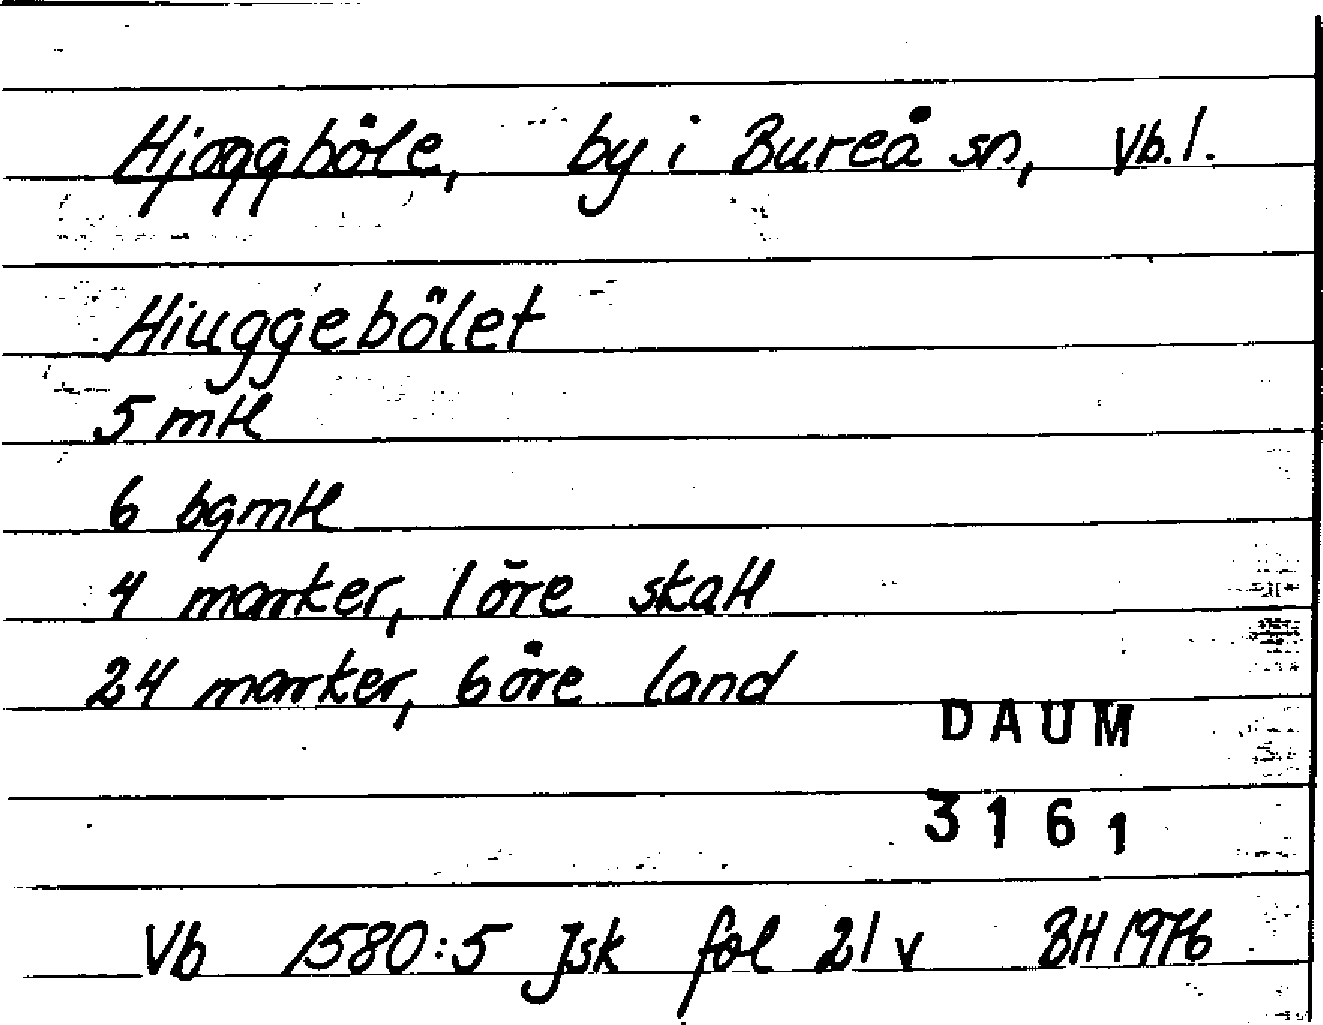 Hjoggböle, by i Bureå sn, Vb.l.
Hiuggebölet
5 mtl
6 bgmtl
4 marker, 1 öre skatt
24 marker, 6 öre land
DAUM
3161
Vb 1580:5 Jsk fol 21 v BH 1976